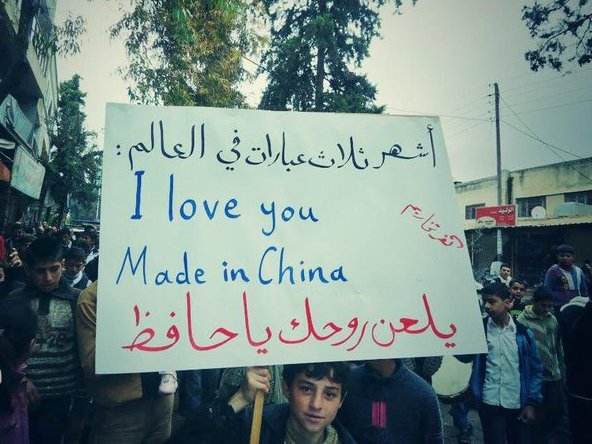 أشهر ثلاث عبارات في العالم:
I love you
Made in China
يلعن روحك يا حافظ
كفرتخاريم